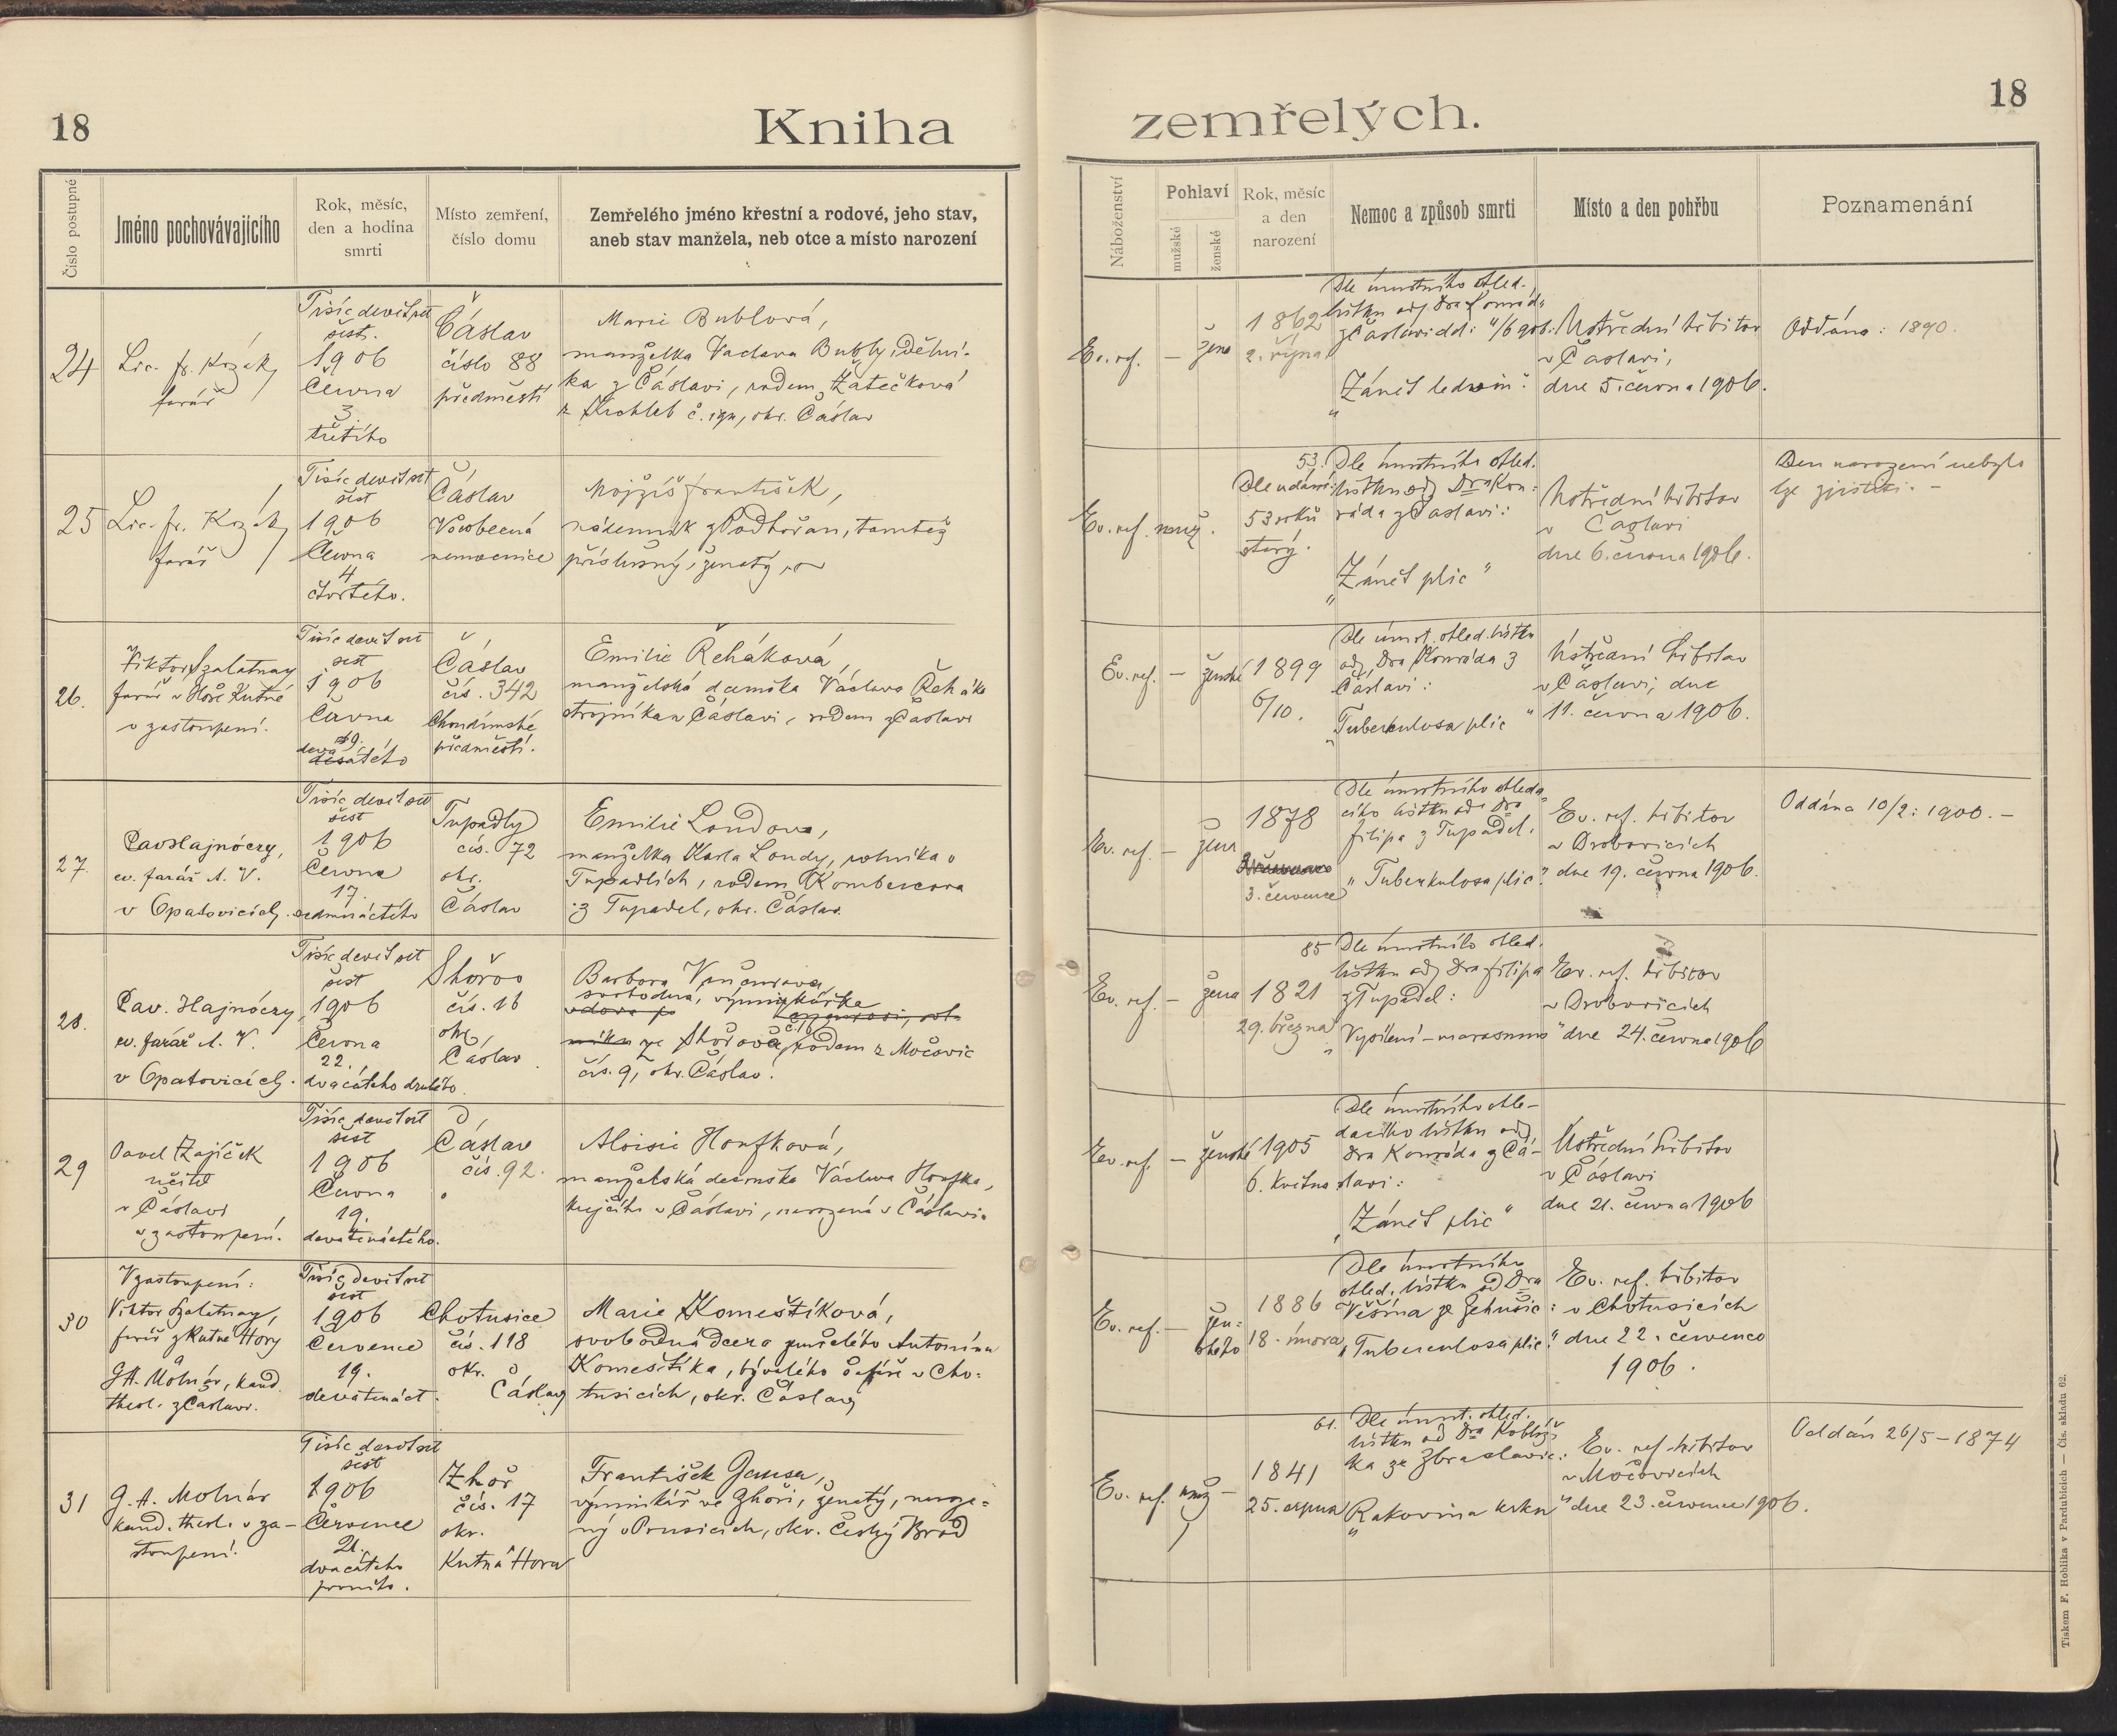 18
Kniha
zemřelých.
18
Číslo postupné
Jméno pochovávajícího
Rok, měsíc,
den a hodina
smrti
Místo zemření,
číslo domu
Zemřelého jméno křestní a rodové, jeho stav,
aneb stav manžela, neb otce a místo narození
Náboženství
Pohlaví
mužské
ženské
Rok, měsíc
a den
narození
Nemoc a způsob smrti
Místo a den pohřbu
Poznamenání
24
Lic. fr. Kozák,
farář
Tisíc devět set
šest.
1906
Června
3.
třetího
Čáslav
číslo 88
předměstí
Marie Bublová,
manželka Václava Bubly, dělní-
ka z Čáslavi, rodem Zátečková
z Krchleb č. , okr. Čáslav
Ev. ref.
—
žena
1862
2. října
Dle úmrtního ohled.
lístku od Dra Konráda
z Čáslavi dd: 4/6 906:
"Zánět ledvin".
Ústřední hřbitov
v Čáslavi,
dne 5. června 1906.
Oddána: 1890.
25
Lic. fr. Kozák,
farář
Tisíc devět set
šest
1906
Června
4
čtvrtého.
Čáslav
Všeobecná
nemocnice
Mojžíš František,
nádenník z Podhořan, tamtéž
příslušný, ženatý,
Ev. ref.
muž.
53.
Dle udání:
53 roků
starý.
Dle úmrtního ohled.
lístku od Dra Kon-
ráda z Čáslavi:
"Zánět plic"
Ústřední hřbitov
v Čáslavi
dne 6. června 1906.
Den narození nebylo
lze zjistiti. —
26.
Viktor Szalatnay
farář v Hoře Kutné
v zastoupení.
Tisíc devět set
šest
1906
Června
9.
devátého
Čáslav
čís. 342
Chrudimské
předměstí.
Emilie Řeháková,
manželská dceruška Václava Řeháka
strojníka v Čáslavi, rodem z Čáslavi
Ev. ref.
—
ženské
1899
6/10.
Dle úmrt. ohled. lístku
od Dra Konráda z
Čáslavi:
"Tuberkulosa plic"
Ústřední hřbitov
v Čáslavi, dne
11. června 1906.
27.
Pav. Hajnóczy,
ev. farář A. V.
v Opatovicích.
Tisíc devět set
šest
1906
Června
17.
sedmnáctého
Tupadly
čís. 72
okr.
Čáslav
Emilie Londova,
manželka Karla Londy, rolníka v
Tupadlích, rodem Kombercova
z Tupadel, okr. Čáslav
Ev. ref.
—
žena
1878
3. července
Dle úmrtního ohleda-
cího lístku od Dra
Filipa z Tupadel:
"Tuberkulosa plic".
Ev. ref. hřbitov
v Drobovicích
dne 19. června 1906.
Oddána 10/2: 1900. —
28.
Pav. Hajnóczy,
ev. farář A. V.
v Opatovicích.
Tisíc devět set
šest
1906
Června
22.
dvacátého druhého.
Shořov
čís. 16
okr.
Čáslav.
Barbora
svobodná, výminkářka
vdova po
ze Shořova č. 16, rodem z Močovic
čís. 9, okr. Čáslav.
Ev. ref.
—
žena
85
1821
29. března
Dle úmrtního ohled.
lístku od Dra Filipa
z Tupadel:
"Vysílení — marasmus"
Ev. ref. hřbitov
v Drobovicích
dne 24. června 1906
29
Pavel Zajíček
učitel
v Čáslavi
v zastoupení.
Tisíc devět set
šest
1906
Června
19.
devatenáctého.
Čáslav
čís. 92.
Aloisie Houfková,
manželská dceruška Václava Houfka,
krejčího v Čáslavi, narozená v Čáslavi.
Ev. ref.
—
ženské
1905
6. května
Dle úmrtního ohle-
dacího lístku od
Dra Konráda z Čá-
slavi:
"Zánět plic"
Ústřední hřbitov
v Čáslavi
dne 21. června 1906
30
V zastoupení:
Viktor Szalatnay,
farář z Kutné Hory
G. A. Molnár, kand.
theol. z Čáslavi.
Tisíc devět set
šest
1906
Července
19.
devatenáct.
Chotusice
čís. 118
okr.
Čáslav
Marie Komeštíková,
svobodná dcera zemřelého Antonína
Komeštíka, bývalého šafáře v Cho-
tusicích, okr. Čáslav
Ev. ref.
—
žen-
ského
1886
18. února
Dle úmrtního
ohled. lístku od Dra
Věšína ze Žehušic:
"Tuberculosa plic".
Ev. ref. hřbitov
v Chotusicích
dne 22. července
1906.
31
G. A. Molnár
kand. theol. v za-
stoupení.
Tisíc devět set
šest
1906
Července
21.
dvacátého
prvního.
Zhoř
čís. 17
okr.
Kutná Hora
František Jansa,
výminkář ve Zhoři, ženatý, naroze-
ný v Prusicích, okr. Český Brod
Ev. ref.
muž
—
61.
1841
25. srpna
Dle úmrt. ohled.
lístku od Dra Koblíž-
ka ze Zbraslavic:
"Rakovina krku"
Ev. ref. hřbitov
v Močovicích
dne 23. července 1906.
Oddán 26/5 — 1874
Tiskem F. Hoblíka v Pardubicích — Čís. skladu 62.